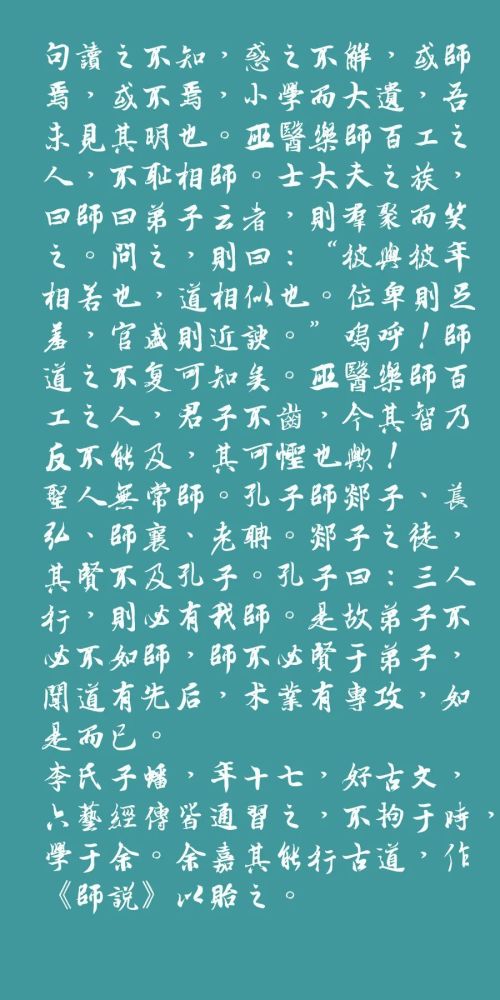 句讀之不知，惑之不解，或師
焉，或不焉，小學而大遺，吾
未見其明也。巫醫樂師百工之
人，不耻相師。士大夫之族，
曰師曰弟子云者，則羣聚而笑
之。問之，則曰：“彼與彼年
相若也，道相似也。位卑則足
羞，官盛則近諛。”嗚呼！師
道之不复可知矣。巫醫樂師百
工之人，君子不齒，今其智乃
反不能及，其可慳也歟！
聖人無常師。孔子師郯子、萇
弘、師襄、老聃。郯子之徒，
其賢不及孔子。孔子曰：三人
行，則必有我師。是故弟子不
必不如師，師不必賢于弟子，
聞道有先后，术業有專攻，如
是而已。
李氏子蟠，年十七，好古文，
六藝經傳皆通習之，不拘于時，
學于余。余嘉其能行古道，作
《師説》以貽之。